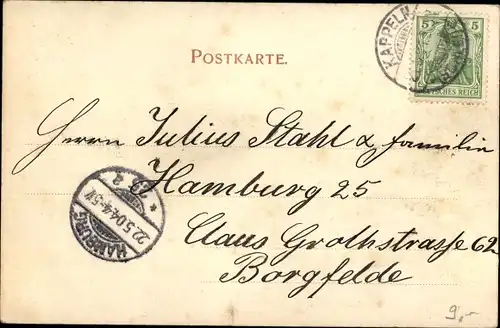 5 5
DEUTSCHES REICH
KAPPELN
POSTKARTE.
Herrn Julius Stahl & familie
Hamburg 25
Claus Grothstrasse 62
Borgfelde
HAMBURG
22.5.04.4-5N
9,-